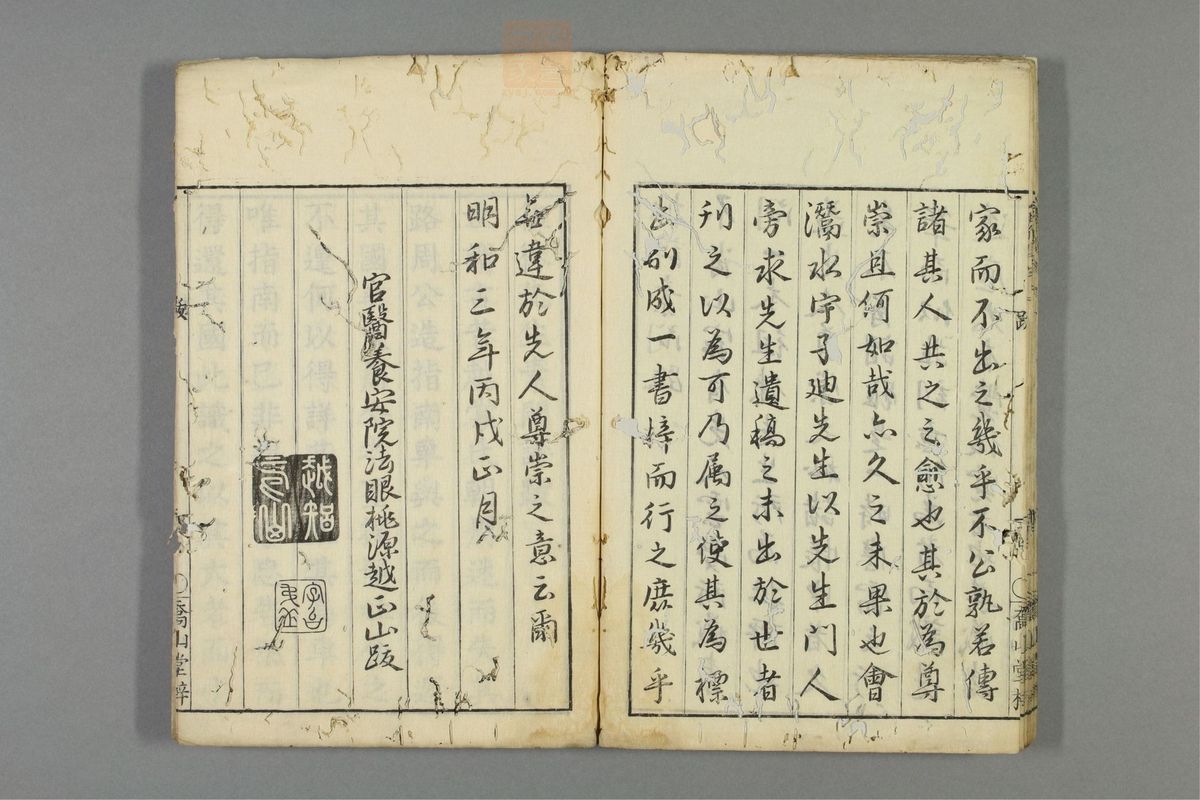 家而不出之幾乎不公孰若傳
諸其人共之之愈也其於為尊
崇且何如哉亦久之未果也會
灊水宇子廸先生以先生門人
旁求先生遺稿之未出於世者
刊之以為可乃属之使其為標
出別成一書梓而行之庶幾乎
無違於先人尊崇之意云爾
明和三年丙戌正月
官醫養安院法眼桃源越正山跋
越智
正山
跋
嵩山堂梓